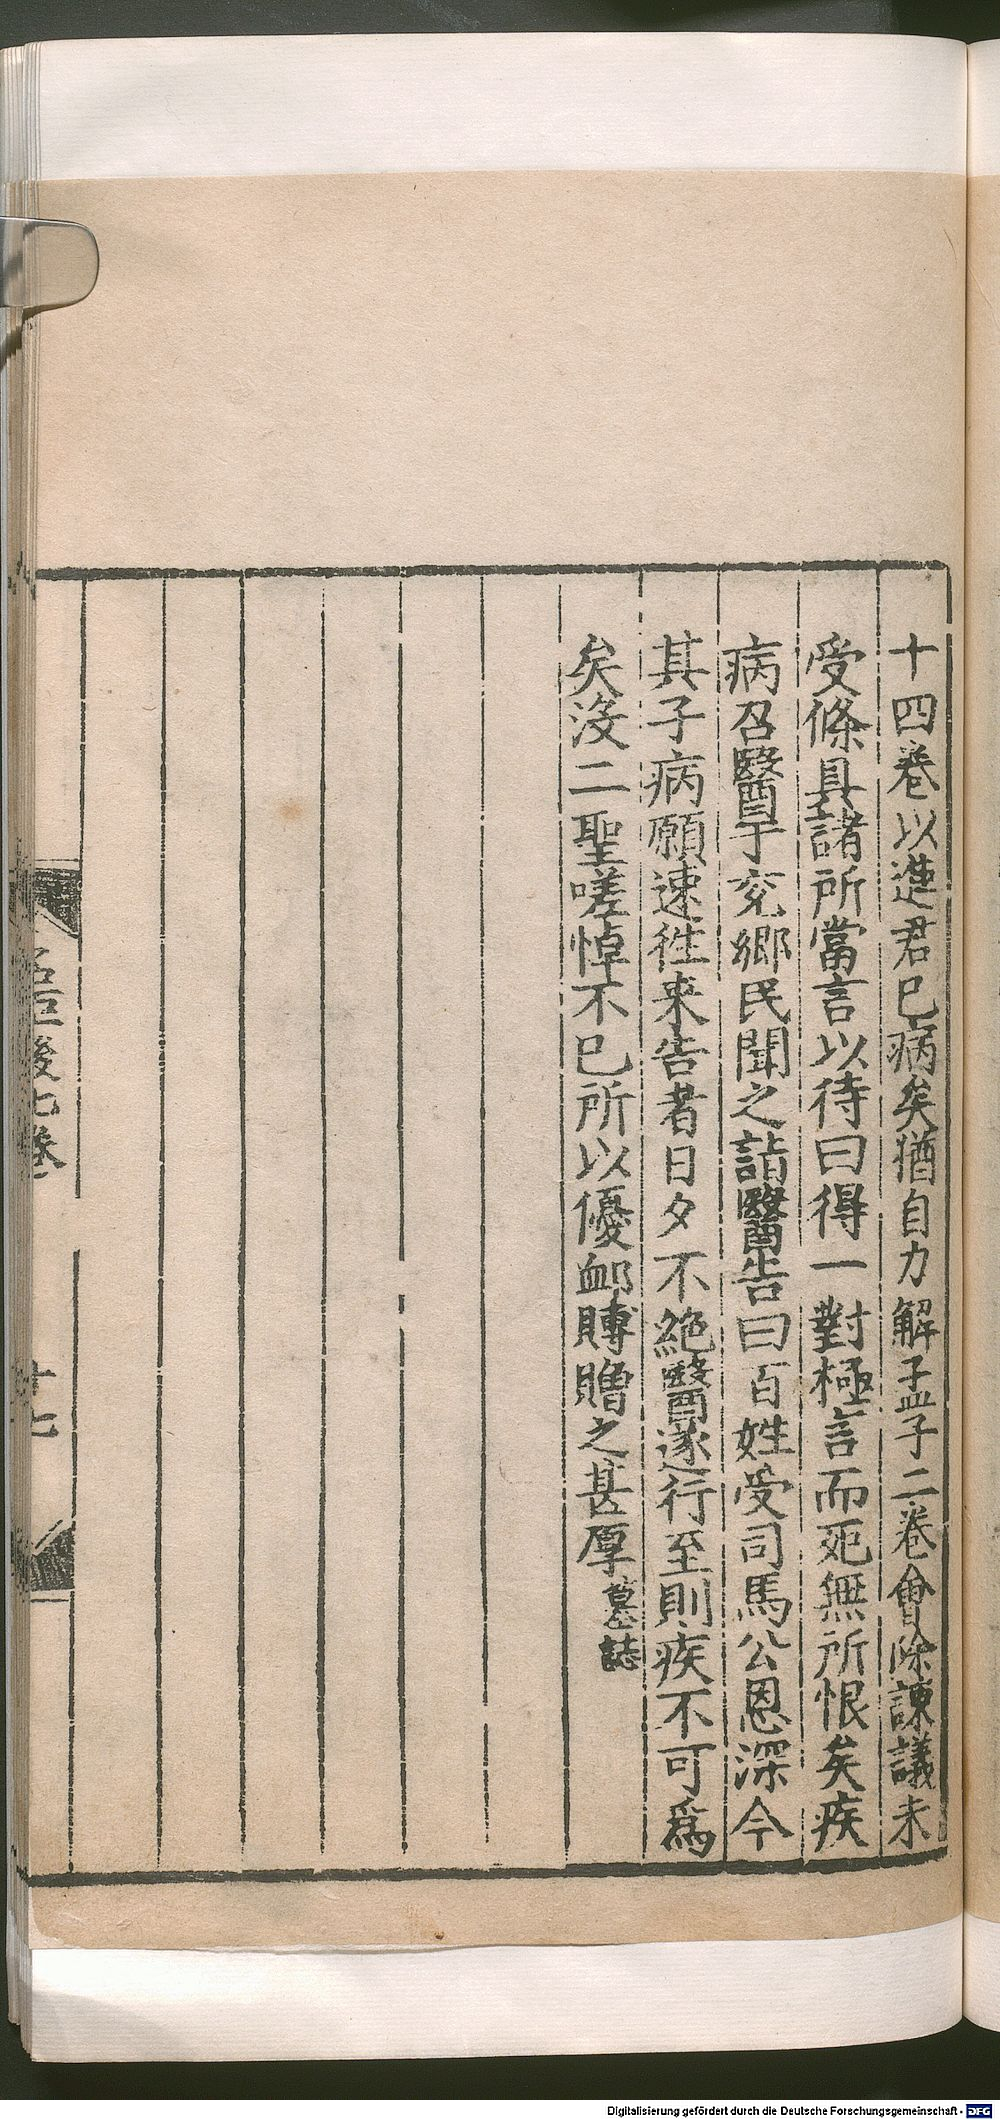 十四卷以進君已病矣猶自力解孟子二卷會除諫議未
受條具諸所當言以待曰得一對極言而死無所恨矣疾
病召醫于兖鄉民聞之詣醫告曰百姓受司馬公恩深今
其子病願速徃来告者日夕不絶醫遂行至則疾不可爲
矣没二聖嗟悼不已所以優衈賻贈之甚厚墓誌
後七卷
十七
Digitalisierung gefördert durch die Deutsche Forschungsgemeinschaft - DFG